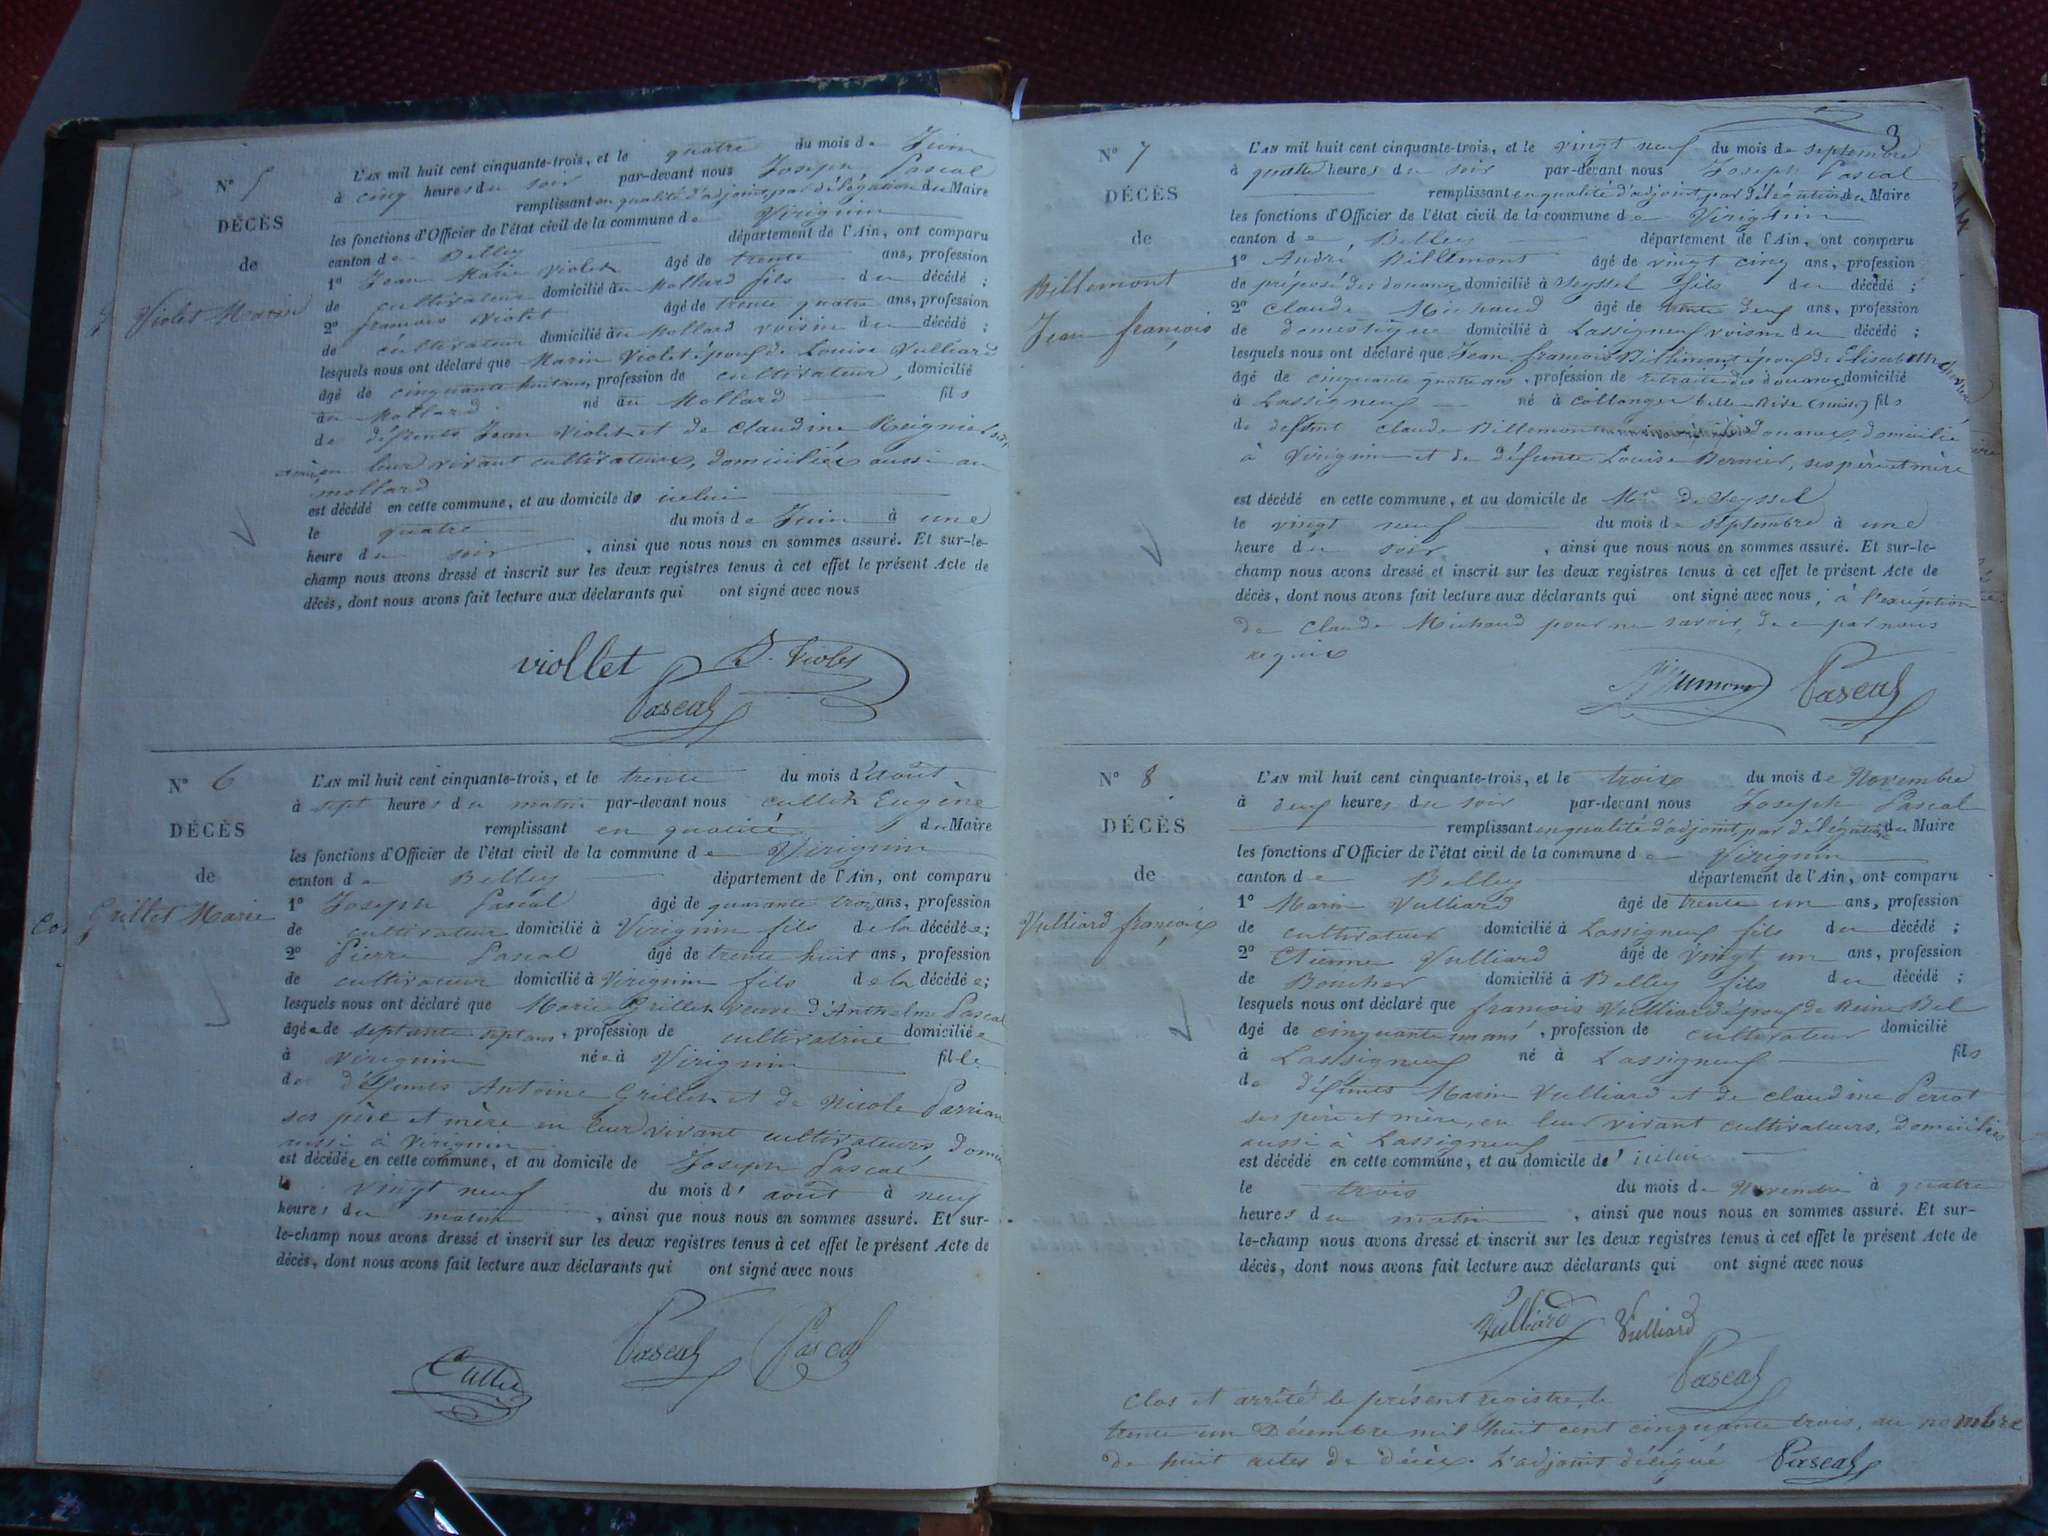 N° 5
DÉCÈS
de
Violet Marin
L'AN mil huit cent cinquante-trois, et le quatre du mois de Juin
à cinq heures du soir par-devant nous Joseph Pascal
remplissant en qualité d'adjoint, par délégation du Maire
les fonctions d'Officier de l'état civil de la commune de Virignin
canton de Belley département de l'Ain, ont comparu
1° Jean Marie Violet âgé de trente ans, profession
de cultivateur domicilié au Mollard fils du décédé ;
2° francois Violet âgé de trente quatre ans, profession
de cultivateur domicilié au Mollard voisin du décédé ;
lesquels nous ont déclaré que Marin Violet époux de Louise Vulliard
âgé de cinquante huit ans, profession de cultivateur, domicilié
au Mollard né au Mollard fils
de défunts Jean Violet et de Claudine Reignier
en leur vivant cultivateurs, domiciliés aussi au
mollard
est décédé en cette commune, et au domicile de icelui
le quatre du mois de Juin à une
heure du soir, ainsi que nous nous en sommes assuré. Et sur-le-
champ nous avons dressé et inscrit sur les deux registres tenus à cet effet le présent Acte de
décès, dont nous avons fait lecture aux déclarants qui ont signé avec nous
viollet Violet
Pascal
N° 6
DÉCÈS
de
Grillet Marie
L'AN mil huit cent cinquante-trois, et le trente du mois d'Août
à sept heures du matin par-devant nous Cullet Eugène
remplissant en qualité du Maire
les fonctions d'Officier de l'état civil de la commune de Virignin
canton de Belley département de l'Ain, ont comparu
1° Joseph Pascal âgé de quarante trois ans, profession
de cultivateur domicilié à Virignin fils de la décédée ;
2° Pierre Pascal âgé de trente huit ans, profession
de cultivateur domicilié à Virignin fils de la décédée ;
lesquels nous ont déclaré que Marie Grillet veuve d'Anthelme Pascal
âgée de septante sept ans, profession de cultivatrice domiciliée
à Virignin née à Virignin fille
de défunts Antoine Grillet et de Nicole
ses père et mère en leur vivant cultivateurs, domi
aussi à Virignin
est décédée en cette commune, et au domicile de Joseph Pascal
le vingt neuf du mois d'août à neuf
heures du matin, ainsi que nous nous en sommes assuré. Et sur-
le-champ nous avons dressé et inscrit sur les deux registres tenus à cet effet le présent Acte de
décès, dont nous avons fait lecture aux déclarants qui ont signé avec nous
Pascal Pascal
Cullet
3
N° 7
DÉCÈS
de
Billemont
Jean françois
L'AN mil huit cent cinquante-trois, et le vingt neuf du mois de septembre
à quatre heures du soir par-devant nous Joseph Pascal
remplissant en qualité d'adjoint, par délégation du Maire
les fonctions d'Officier de l'état civil de la commune de Virignin
canton de Belley département de l'Ain, ont comparu
1° André Billemont âgé de vingt cinq ans, profession
de préposé des douanes domicilié à Seyssel fils du décédé ;
2° Claude Michaud âgé de trente deux ans, profession
de domestique domicilié à Lassigneux voisin du décédé ;
lesquels nous ont déclaré que Jean francois Billemont, époux de Elisabeth
âgé de cinquante quatre ans, profession de retraité des douanes domicilié
à Lassigneux né à Collonges Belle-Rive (suisse) fils
de defunt Claude Billemont douanes, domicilié
à Virignin et de défunte Louise Bernier, ses père et mère
est décédé en cette commune, et au domicile de Mr de Seyssel
le vingt neuf du mois de septembre à une
heure du soir, ainsi que nous nous en sommes assuré. Et sur-le-
champ nous avons dressé et inscrit sur les deux registres tenus à cet effet le présent Acte de
décès, dont nous avons fait lecture aux déclarants qui ont signé avec nous, à l'exception
de Claude Michaud pour ne savoir, de ce par nous
requis
Pascal
N° 8
DÉCÈS
de
Vulliard françois
L'AN mil huit cent cinquante-trois, et le trois du mois de Novembre
à deux heures du soir par-devant nous Joseph Pascal
remplissant en qualité d'adjoint par délégation du Maire
les fonctions d'Officier de l'état civil de la commune de Virignin
canton de Belley département de l'Ain, ont comparu
1° Marin Vulliard âgé de trente un ans, profession
de cultivateur domicilié à Lassigneux fils du décédé ;
2° Etienne Vulliard âgé de vingt un ans, profession
de Boucher domicilié à Belley fils du décédé ;
lesquels nous ont déclaré que françois Vulliard époux de Reine Bel
âgé de cinquante ans, profession de cultivateur domicilié
à Lassigneux né à Lassigneux fils
de défunts Marin Vulliard et de Claudine Perrot
ses père et mère, en leur vivant cultivateurs, domiciliés
aussi à Lassigneux
est décédé en cette commune, et au domicile d'icelui
le trois du mois de Novembre à quatre
heures du matin, ainsi que nous nous en sommes assuré. Et sur-
le-champ nous avons dressé et inscrit sur les deux registres tenus à cet effet le présent Acte de
décès, dont nous avons fait lecture aux déclarants qui ont signé avec nous
Vulliard Vulliard
Pascal
Clos et arrêté le présent registre, le
trente un Décembre mil huit cent cinquante trois, au nombre
de huit actes de décès. L'adjoint délégué Pascal